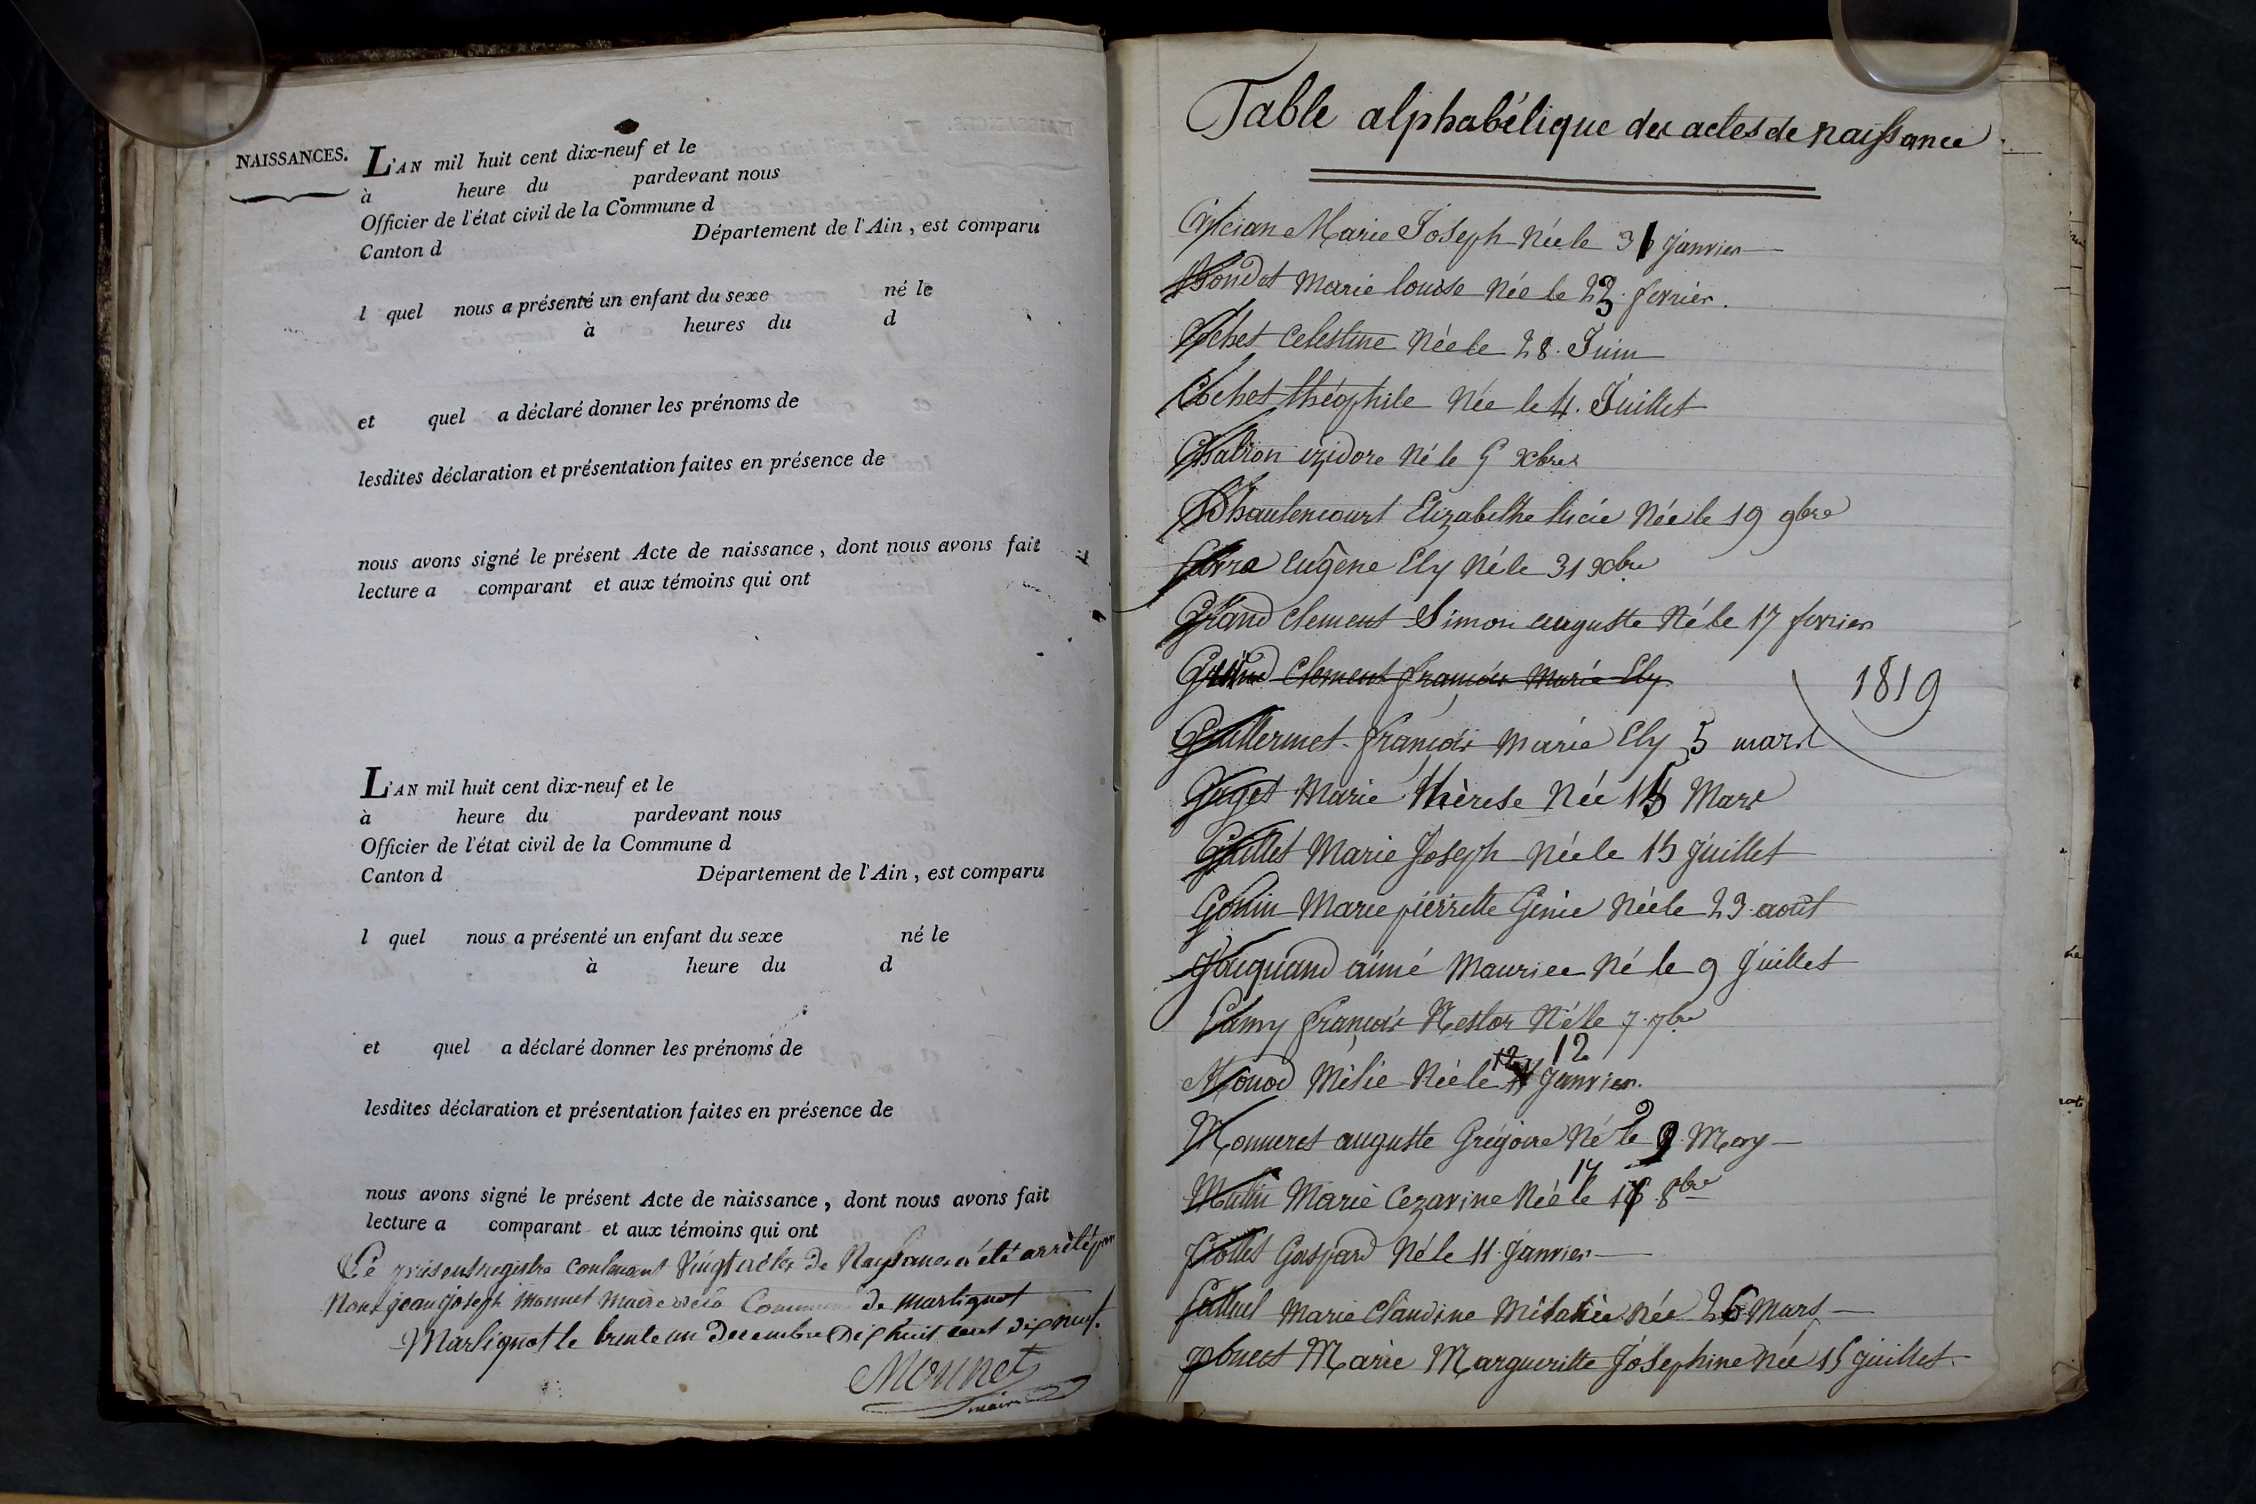 NAISSANCES. L'AN mil huit cent dix-neuf et le
à heure du pardevant nous
Officier de l'état civil de la Commune d
Canton d Département de l'Ain, est comparu
l quel nous a présenté un enfant du sexe né le
à heures du d
et quel a déclaré donner les prénoms de
lesdites déclaration et présentation faites en présence de
nous avons signé le présent Acte de naissance, dont nous avons fait
lecture a comparant et aux témoins qui ont
L'AN mil huit cent dix-neuf et le
à heure du pardevant nous
Officier de l'état civil de la Commune d
Canton d Département de l'Ain, est comparu
l quel nous a présenté un enfant du sexe né le
à heure du d
et quel a déclaré donner les prénoms de
lesdites déclaration et présentation faites en présence de
nous avons signé le présent Acte de naissance, dont nous avons fait
lecture a comparant et aux témoins qui ont
Le présent registre contenant Vingt actes de Naissance a été arrêté par
Nous jean joseph Monnet maire de la Commune de martignat
Martignat le trente un decembre dix huit cent dix neuf.
Monnet
maire
Table alphabétique des actes de naissance
Marie Joseph Née le 31 janvier
Bondet Marie louise Née le 23 fevrier.
Cochet Celestine Née le 28. Juin
Cochet théophile Née le 4. Juillet
Chatron izidore Né le 5 xbre
Dhautencourt Elizabethe lucie Née le 19 9bre
Eugène Ely Né le 31 xbre
Grand Clement Simon auguste Né le 17 fevrier
Grand Clement françois Marie Ely
1819
Guillermet françois Marie Ely 5 mars
Goyet Marie thèrese Née 15 Mars
Guillet Marie Joseph Née le 15 Juillet
Gouin Marie pierrette Génie Née le 23 août
Jouquand aimé Maurice Né le 9 Juillet
Lamy françois Nestor Né le 7 7bre
Monod Mélie Née le 12 12 Janvier.
Monneret auguste Grégoire Né le 9 9 May
Marie Cezarine Née le 14 8bre
Gaspard Né le 11 janvier
Marie Claudine Mélanie Née 26 Mars
Marie Margueritte Joséphine Née 15 juillet.